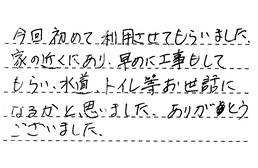 今回初めて利用させてもらいました。
家の近くにあり、早めに工事もして
もらい、水道、トイレ等お世話に
なるかと思いました。ありがとう
ございました。